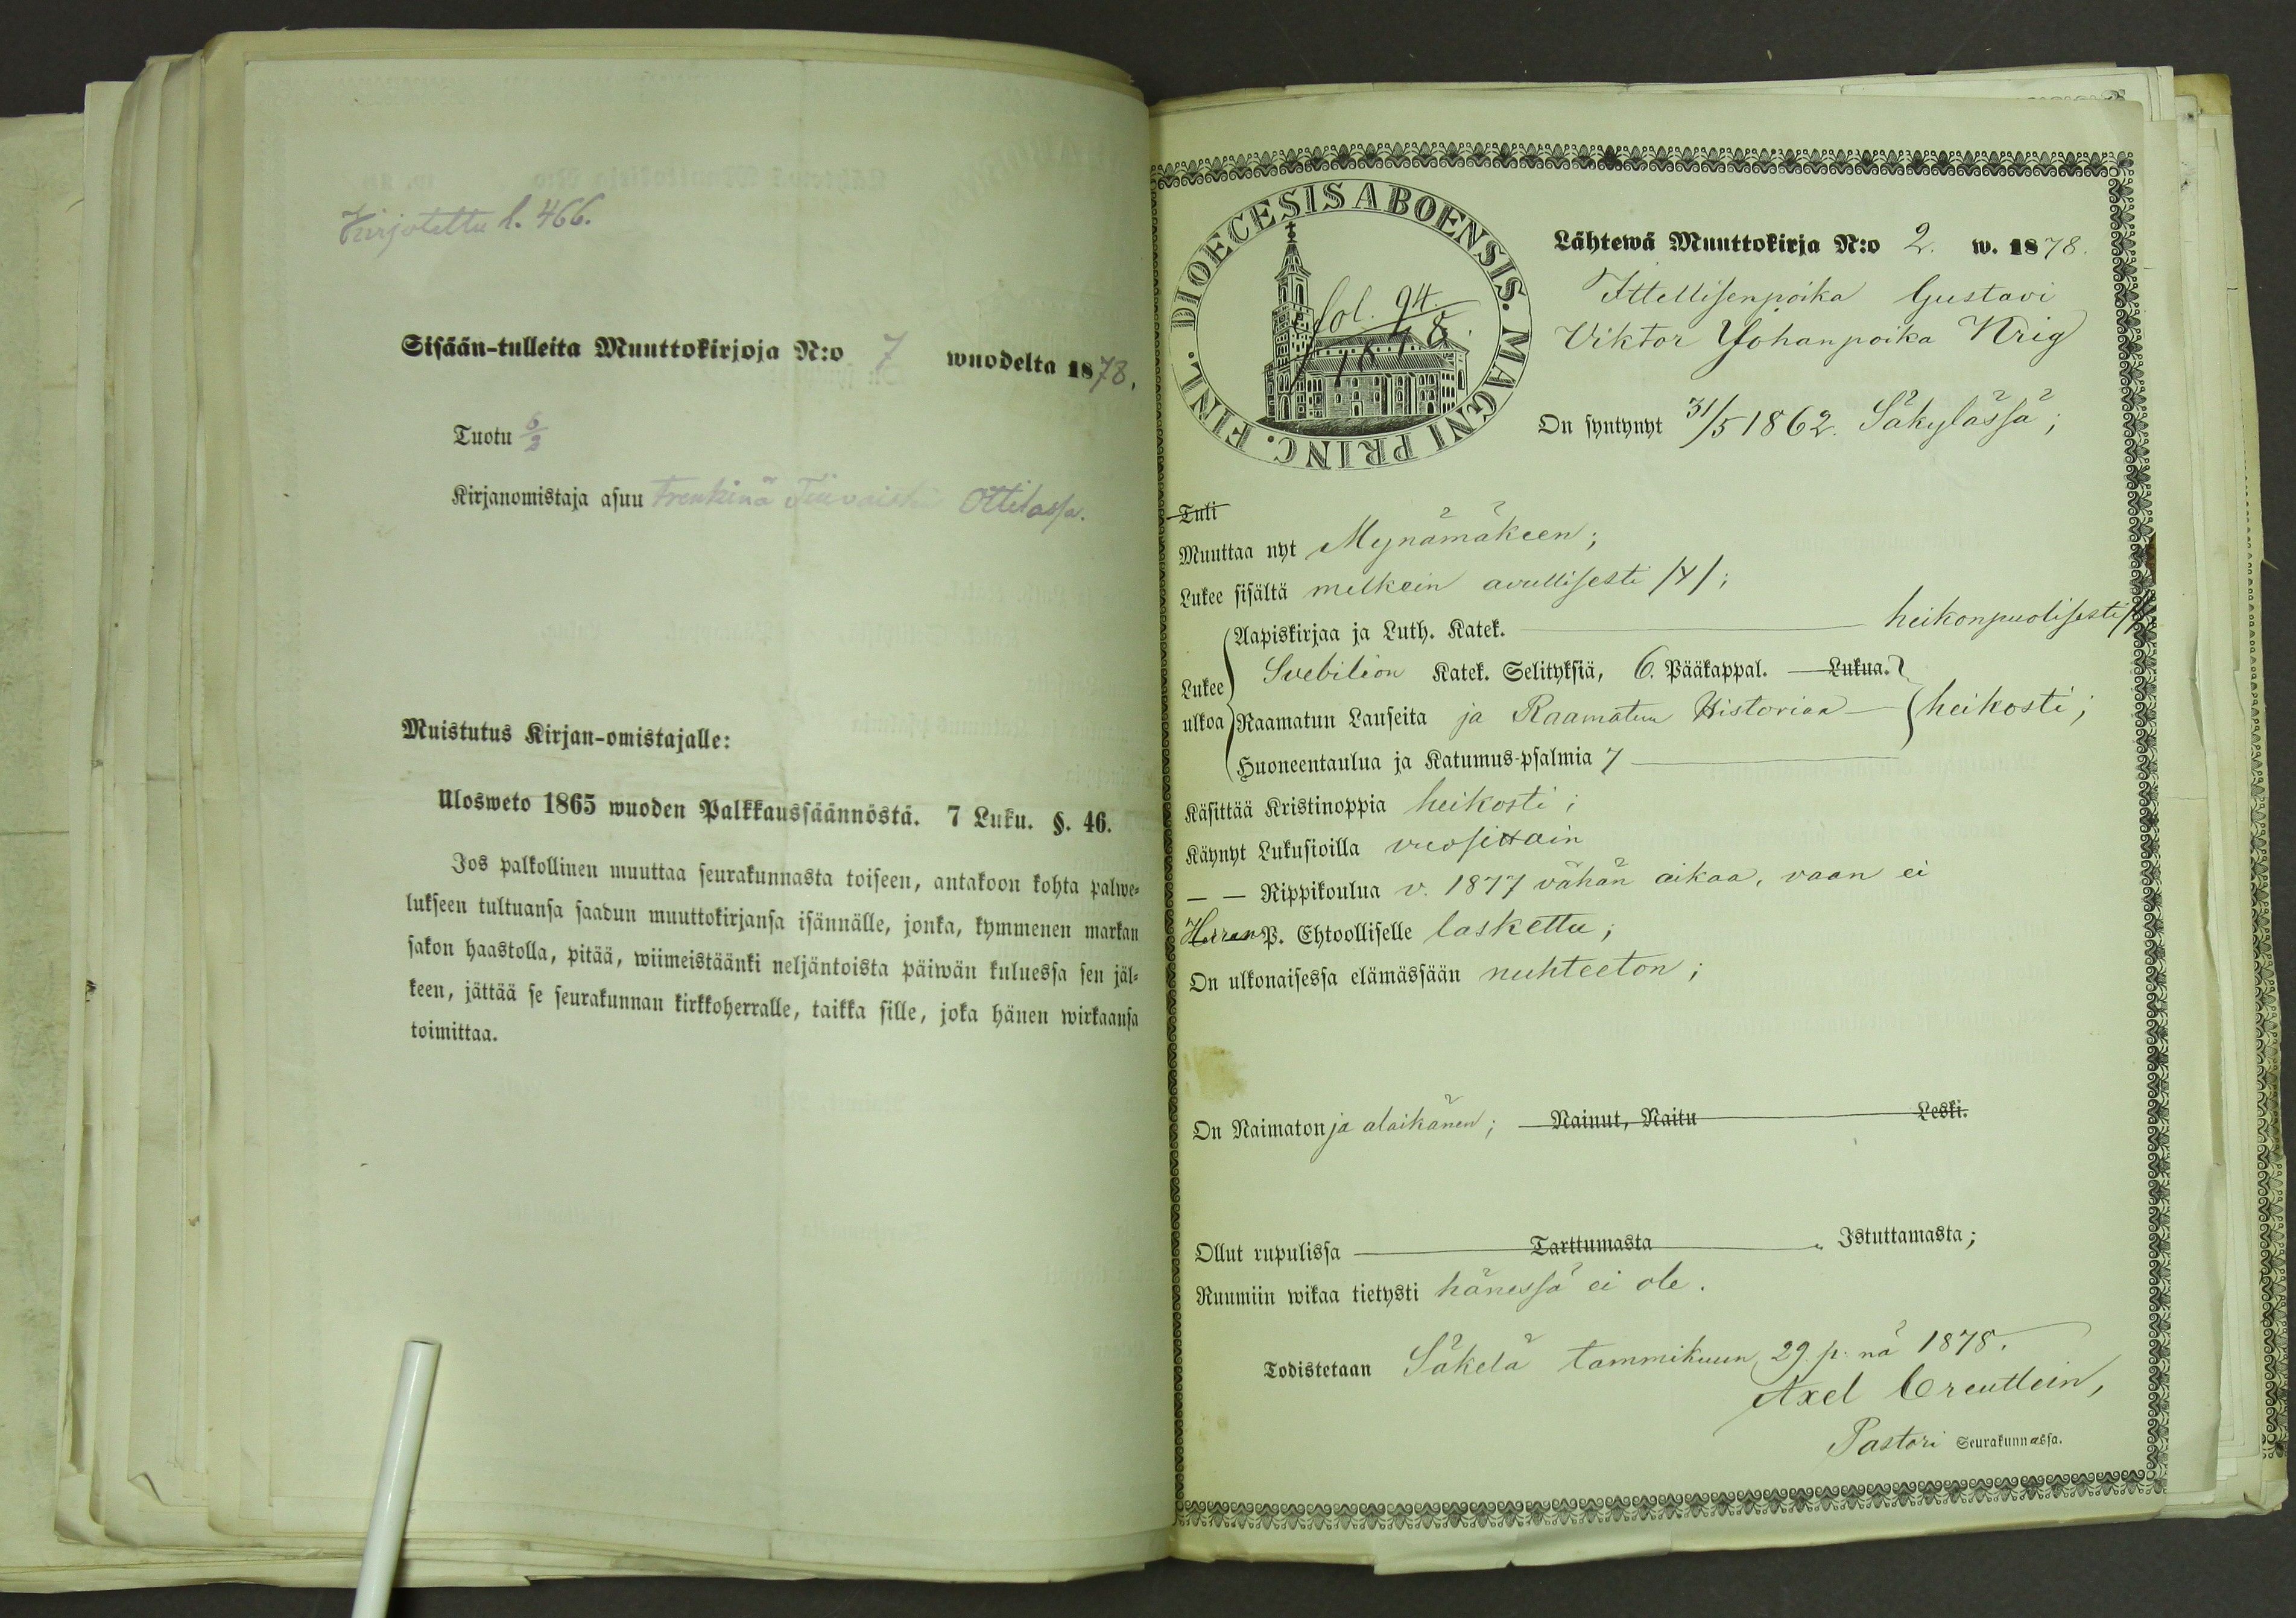 Kirjotettu l. 466.
Sisään-tulleita Muuttokirjoja N:o 7 wuodelta 1878.
Tuotu 6/2
Kirjanomistaja asuu trenkinä Ottilassa.
Muistutus Kirjan-omistajalle:
Ulosweto 1865 wuoden Palkkaussäännöstä. 7 Luku. §. 46.
Jos palkollinen muuttaa seurakunnasta toiseen, antakoon kohta palwe-
lukseen tultuansa saadun muuttokirjansa isännälle, jonka, kymmenen markan
sakon haastolla, pitää, wiimeistäänki neljäntoista päiwän kuluessa sen jäl-
keen, jättää se seurakunnan kirkkoherralle, taikka sille, joka hänen wirkaansa
toimittaa.
FINL. DIOECESIS ABOENSIS. MAGNI PRINC.
fol. 94.
1878.
Lähtewä Muuttokirja N:o 2. w. 1878.
Ittellisenpoika Gustavi
Viktor Johanpoika Krig
On syntynyt 31/5 1862. Säkylässä;
Tuli
Muuttaa nyt Mynämäkeen;
Lukee sisältä melkein avullisesti /4/;
Aapiskirjaa ja Luth. Katek. heikonpuolisesti
Lukee ulkoa Svebilion Katek. Selityksiä, 6. Pääkappal. Lukua.
Raamatun Lauseita ja Raamatun Historiaa heikosti;
Huoneentaulua ja Katumus-psalmia 7
Käsittää Kristinoppia heikosti;
Käynyt Lukusioilla vuosittain
— — Rippikoulua v. 1877 vähän aikaa, vaan ei
Herran P. Ehtoolliselle laskettu;
On ulkonaisessa elämässään nuhteeton;
On Naimaton ja alaikänen; Nainut, Naitu Leski.
Ollut rupulissa Tarttumasta Istuttamasta;
Ruumiin wikaa tietysti hänessä ei ole.
Todistetaan Säkelä tammikuun 29 p:nä 1878.
Axel Creutlein,
Pastori Seurakunnassa.